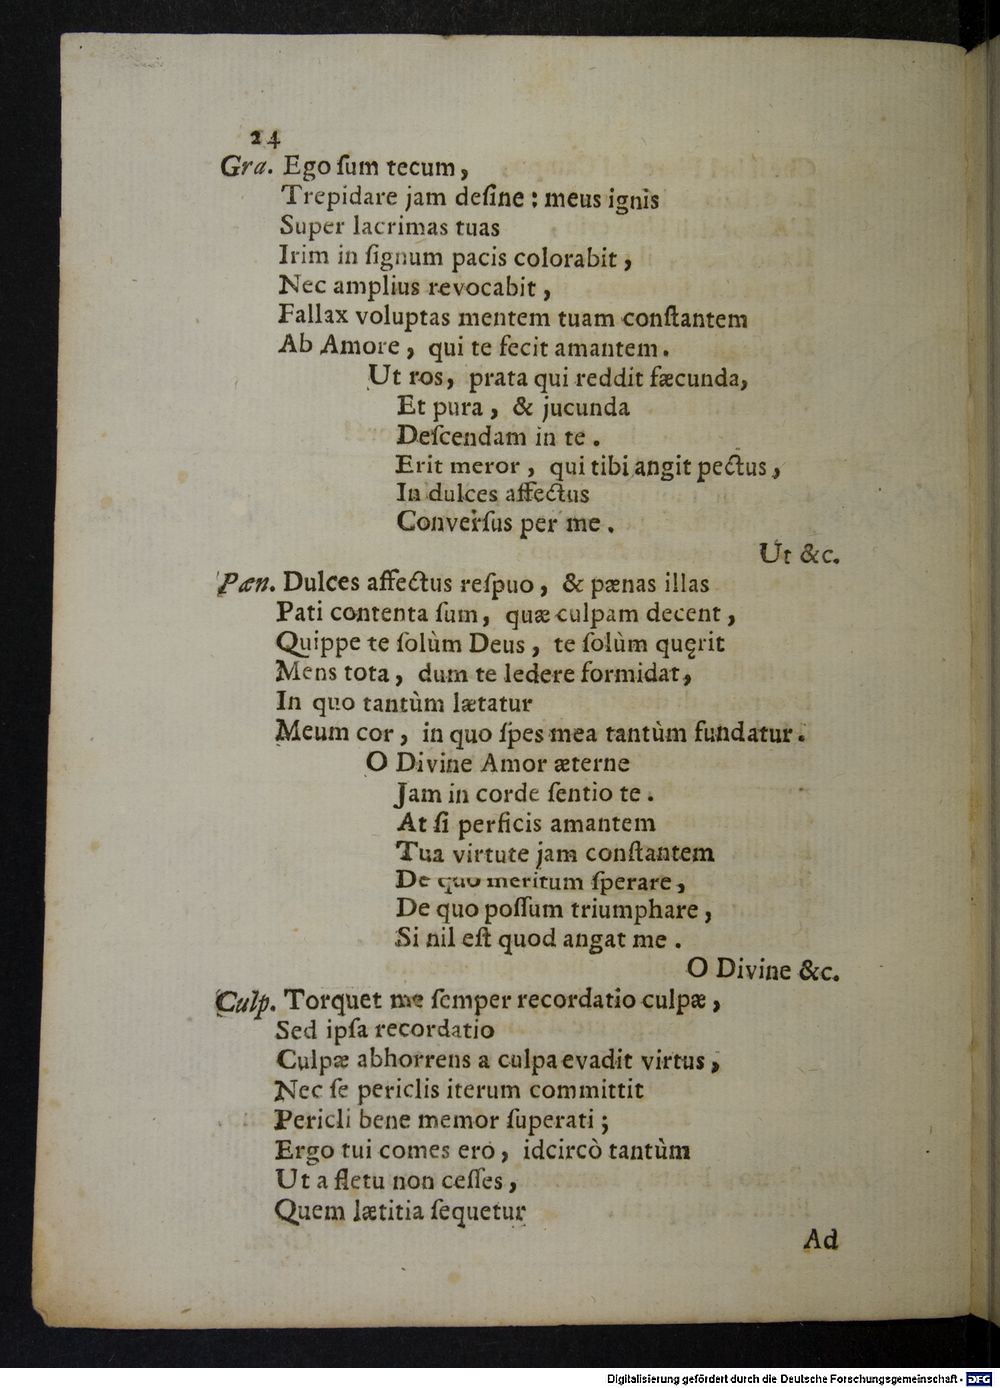 24
Gra. Ego ſum tecum,
Trepidare jam deſine : meus ignis
Super lacrimas tuas
Irim in ſignum pacis colorabit,
Nec amplius revocabit,
Fallax voluptas mentem tuam conſtantem
Ab Amore, qui te fecit amantem.
Ut ros, prata qui reddit fæcunda,
Et pura, & jucunda
Deſcendam in te.
Erit meror, qui tibi angit pectus,
In dulces affectus
Converſus per me.
Ut &c.
Pæn. Dulces affectus reſpuo, & pænas illas
Pati contenta ſum, quæ culpam decent,
Quippe te ſolùm Deus, te ſolùm quęrit
Mens tota, dum te ledere formidat,
In quo tantùm lætatur
Meum cor, in quo ſpes mea tantùm fundatur.
O Divine Amor æterne
Jam in corde ſentio te.
At ſi perficis amantem
Tua virtute jam conſtantem
De quo meritum ſperare,
De quo poſſum triumphare,
Si nil eſt quod angat me.
O Divine &c.
Culp. Torquet me ſemper recordatio culpæ,
Sed ipſa recordatio
Culpæ abhorrens a culpa evadit virtus,
Nec ſe periclis iterum committit
Pericli bene memor ſuperati;
Ergo tui comes ero, idcircò tantùm
Ut a fletu non ceſſes,
Quem lætitia ſequetur
Ad
Digitalisierung gefördert durch die Deutsche Forschungsgemeinschaft - DFG